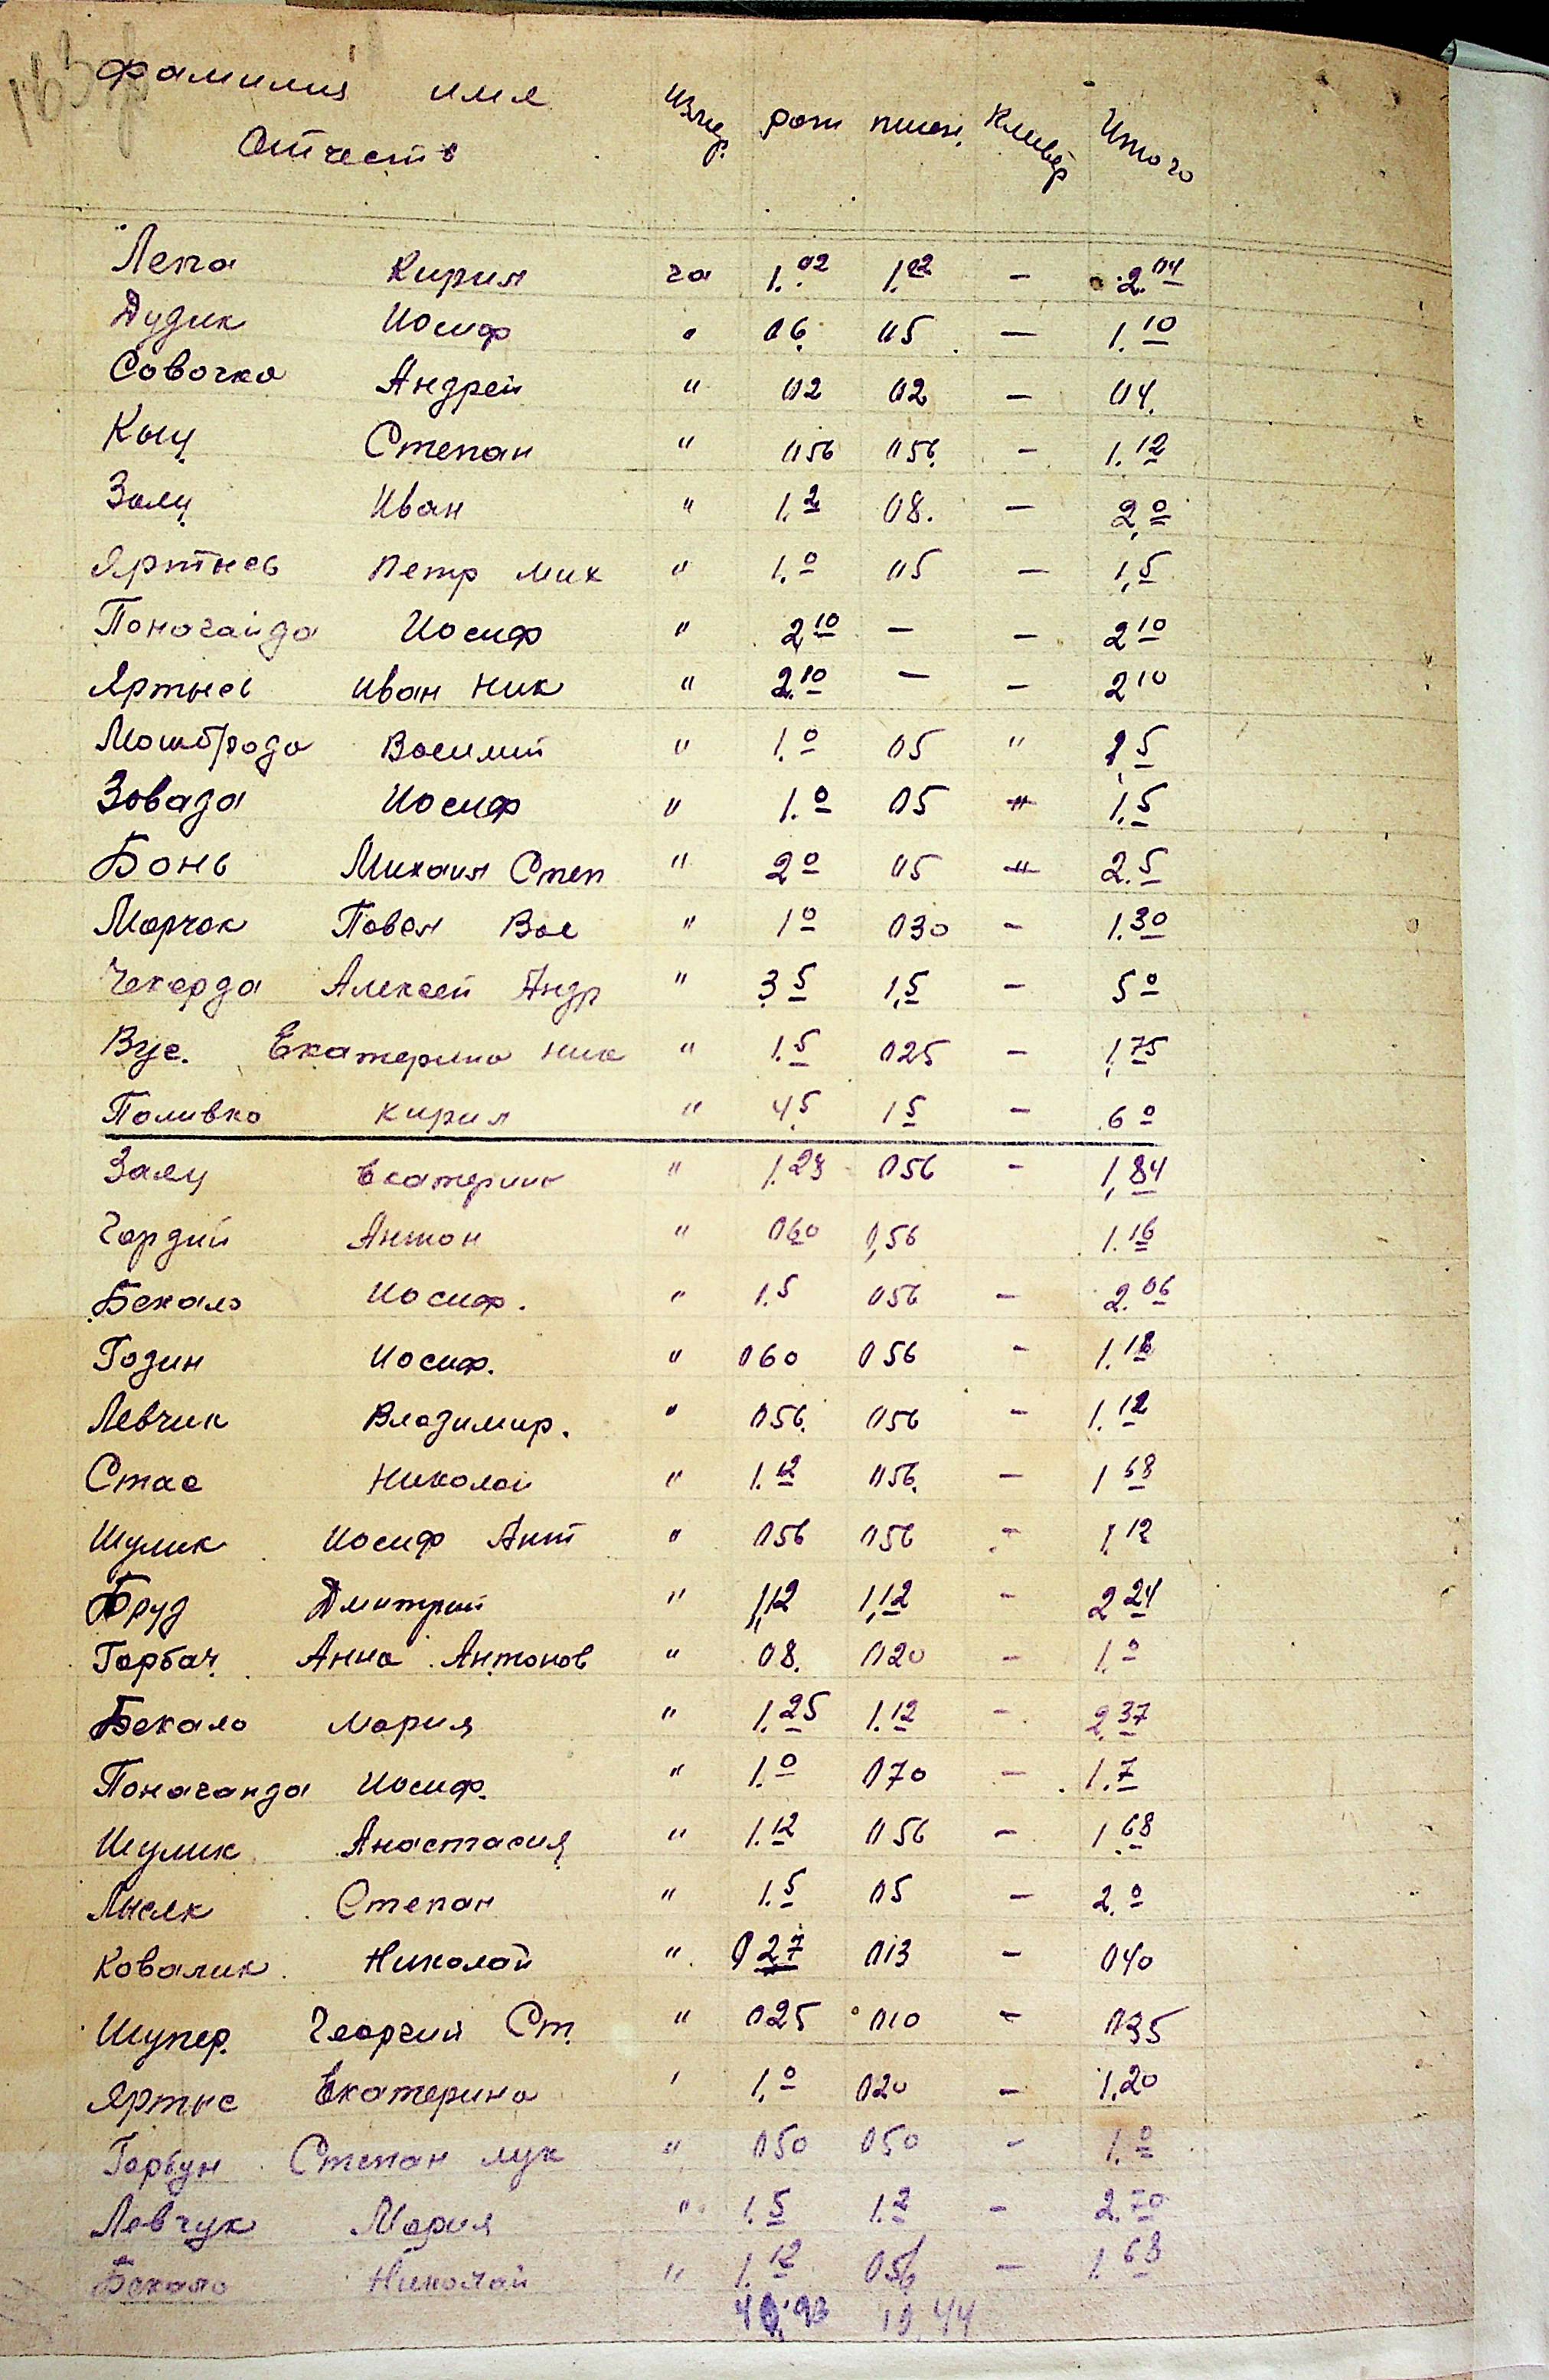 Фамилия имя Измер. рож пшен. Клевер Итого
Отчеств
Лепа Кирил га 1.02 1.02 – 2.04
Дудик Иосиф " 06. 05 – 1.10
Совочка Андрей " 02 02 – 04.
Кыц Степан " 056 056. – 1.12
Заяц Иван " 1.2 08. – 2,0
Яртысь Петр Мих " 1.0 05 – 1,5
Поночайда Иосиф " 2 10 – – 2 10
Яртысь Иван Ник " 2.10 – – 2 10
Мошброда Василий " 1.0 05 " 1 5
Зовада Иосиф " 1.0 05 " 1,5
Бонь Михаил Степ " 2 0 05 " 2.5
Марчак Повел Вас " 1 0 030 – 1.30
Чекерда Алексей Андр " 3 5 1,5 – 5 0
Вус. Екатерина Ник " 1.5 025 – 1,75
Поливко Кирил " 4 5 1 5 – 6 0
Заяц Екатерина " 1.28 056 – 1,84
Гордий Антон " 060 0,56 1.16
Бекало Иосиф. " 1.5 056 – 2.06
Годин Иосиф. " 060 056 – 1.16
Левчик Владимир. " 056. 056 – 1.12
Стас Николай " 1.12 056. – 1 68
Шулик Иосиф Ант " 056 056 – 1,12
Бруд Дмитрий " 1,12 1,12 – 2 24
Горбач Анна Антонов " 08. 020 – 1.0
Бекало Мария " 1.25 1.12 – 2.37
Поначайда Иосиф. " 1.0 070 – 1.7
Шулик Анастасия " 1.12 056 – 1.68
Степан " 1.5 05 – 2.0
Ковалик Николай " 0 27 013 – 040
Шупер. Георгий Ст. " 025 010 – 035
Яртыс Екатерина " 1.0 020 – 1.20
Горбун Степан Лук " 050 050 – 1.0
Левчук Мария " 1.5 1.2 – 2.70
Бекало Николай " 1.12 056 – 1.68
19.44